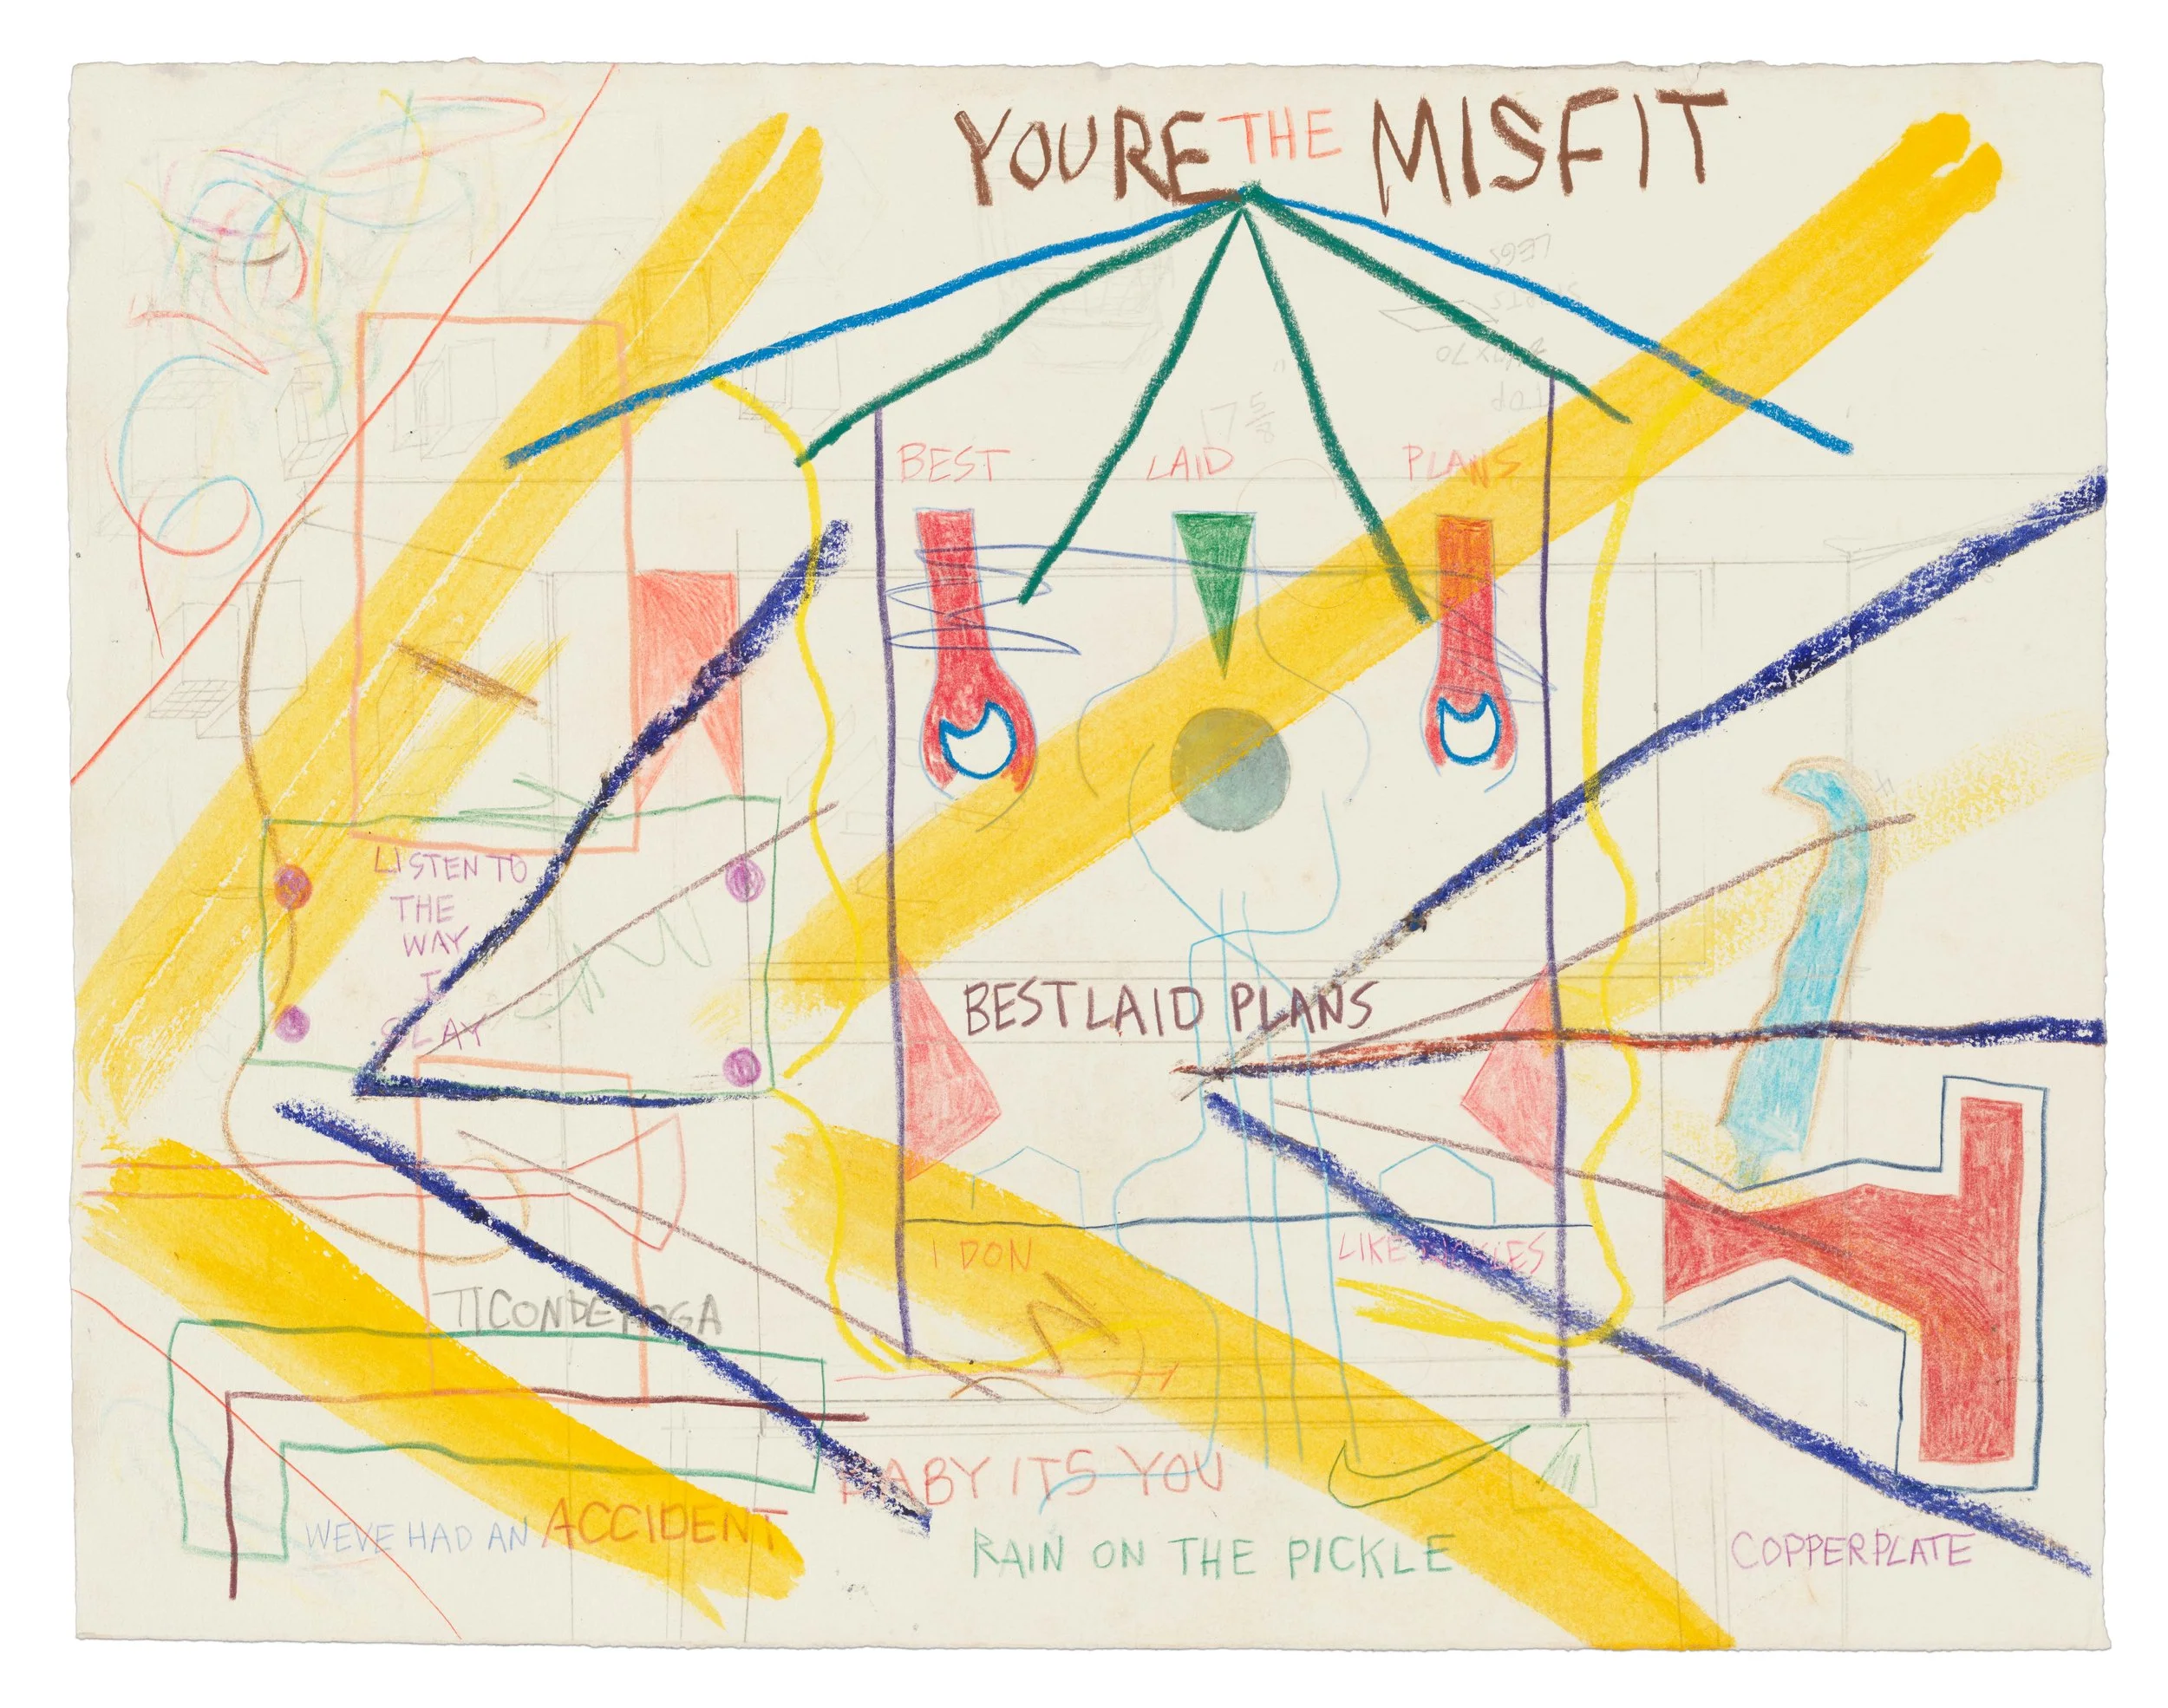 YOURE THE MISFIT
LEGS
TOP
17 5/8"
BEST LAID PLANS
LISTEN TO
THE
WAY
I
BEST LAID PLANS
I DON
LIKE
TICONDEROGA
BABY ITS YOU
WEVE HAD AN ACCIDENT
RAIN ON THE PICKLE
COPPERPLATE